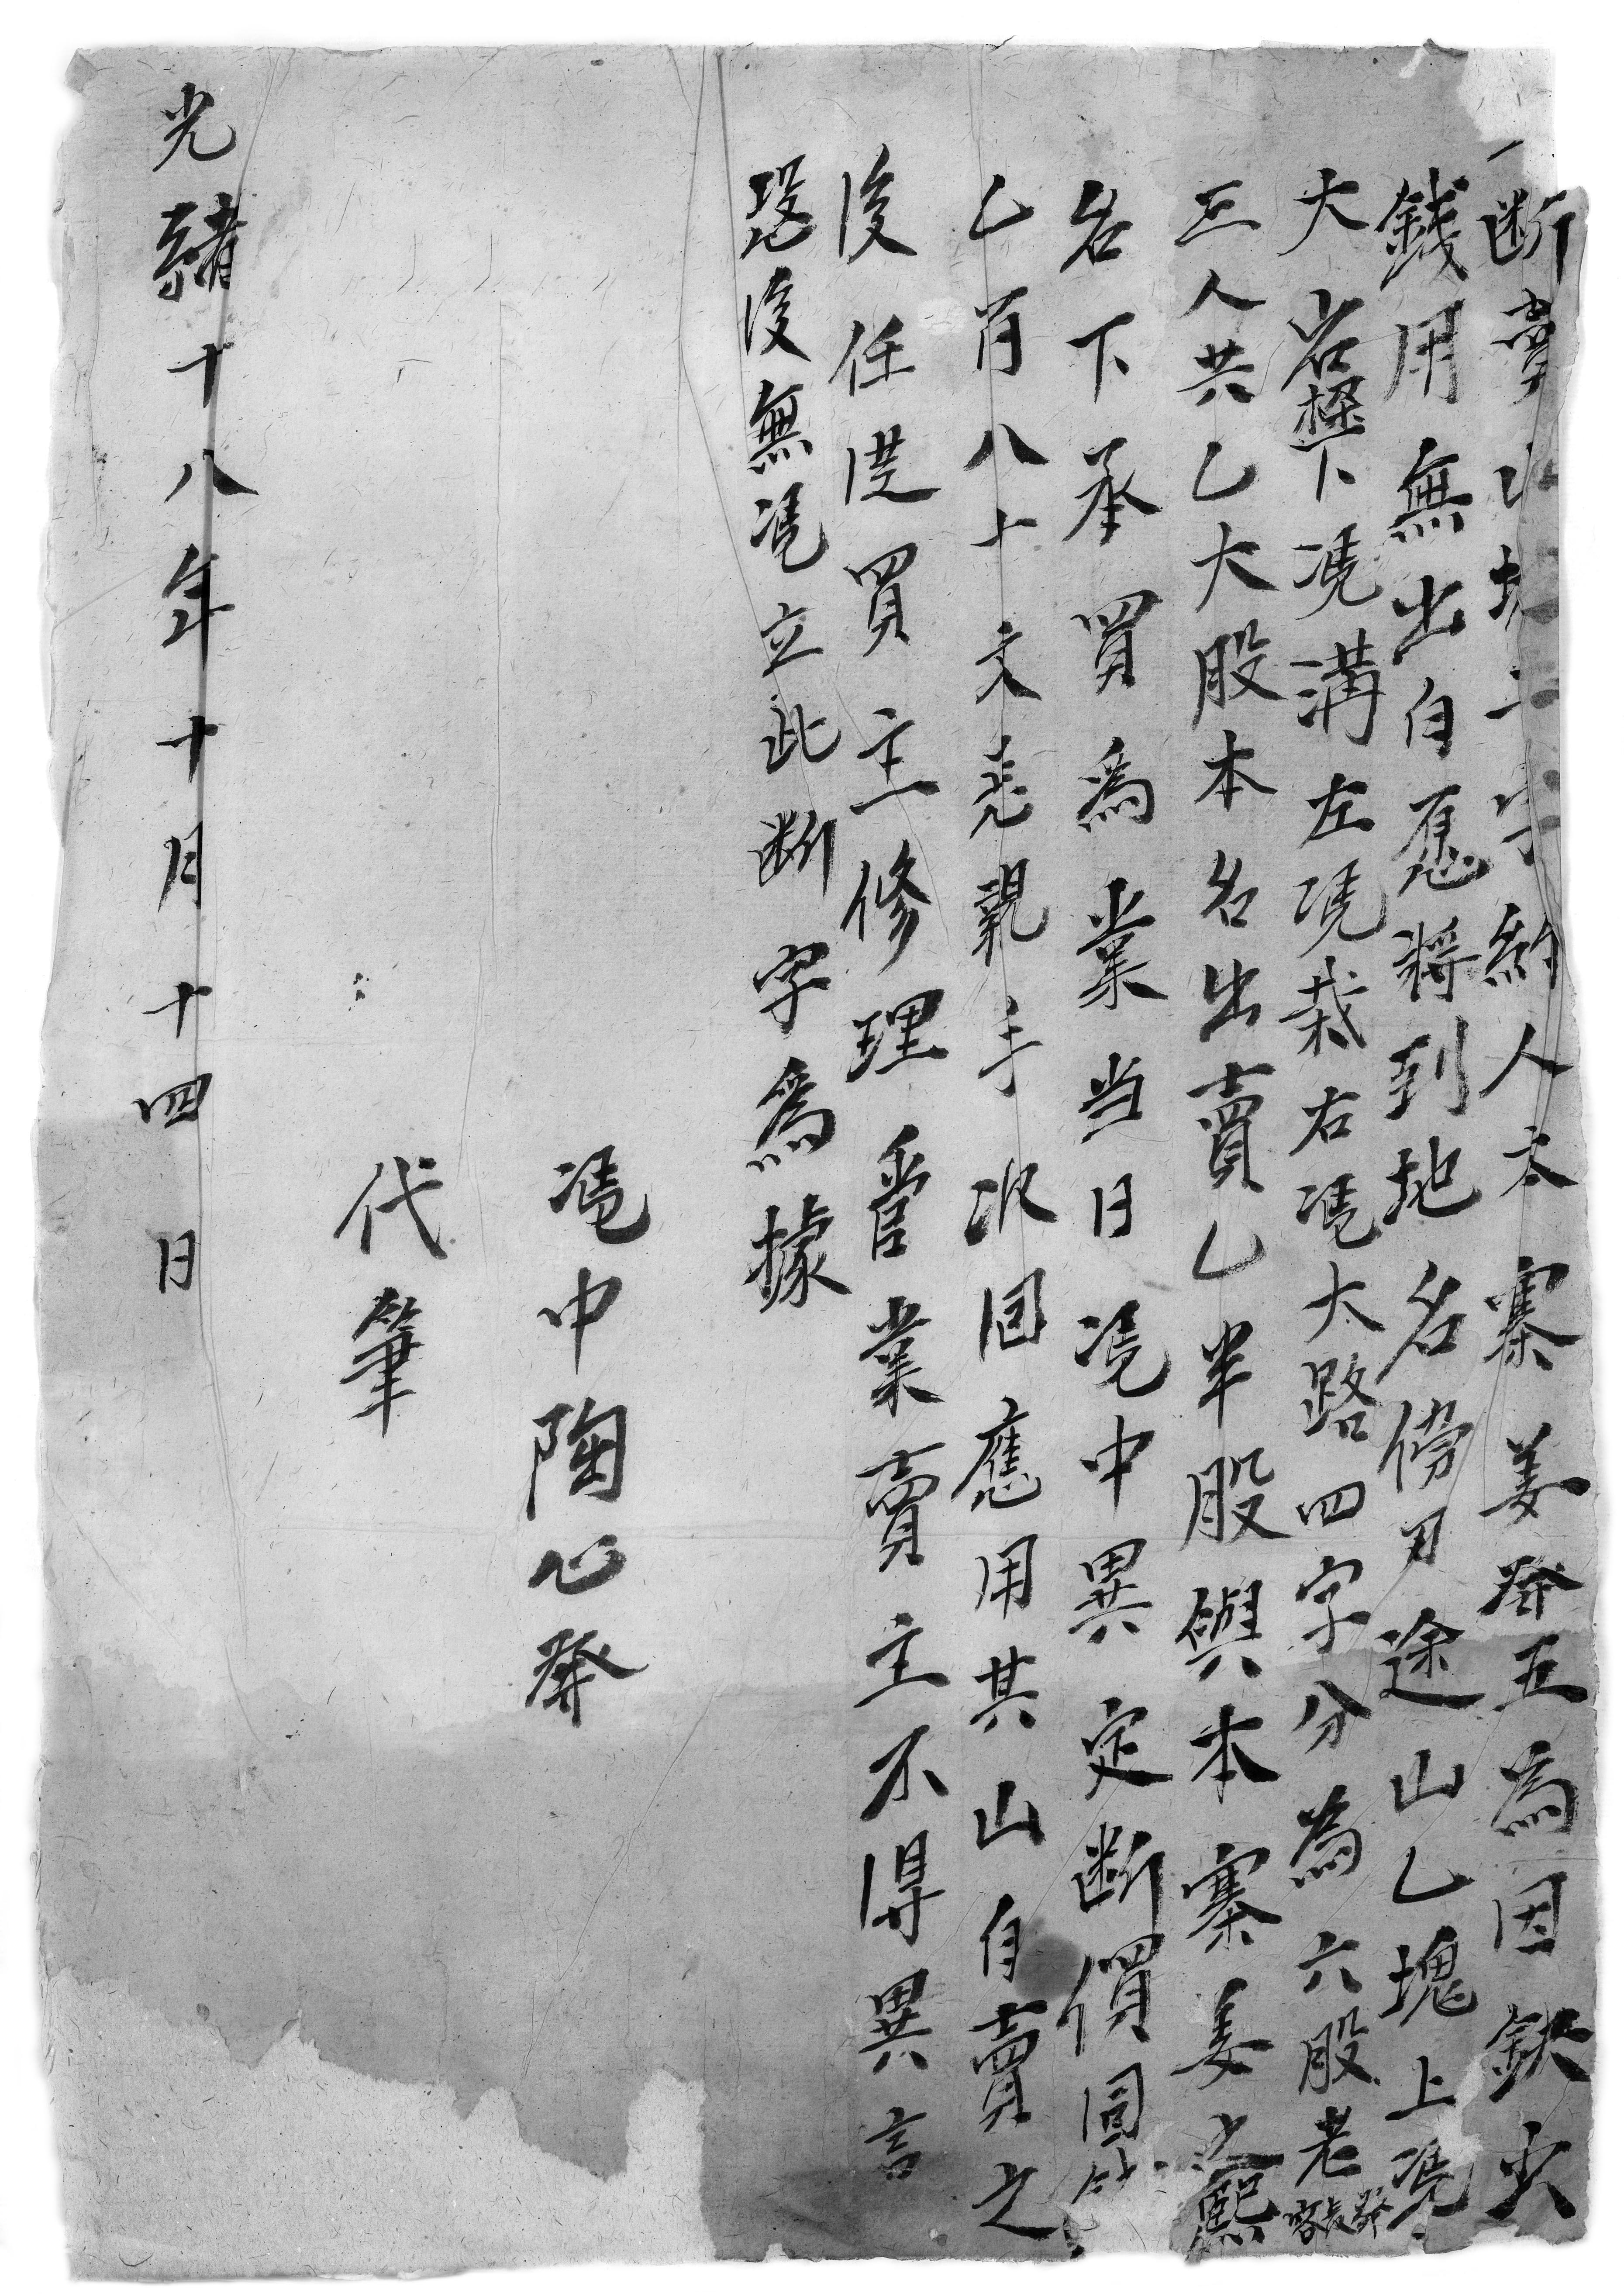 一断賣山塲二字約人太寨姜發五為因缺少
錢用無出自愿將到地名傍刀途山乙塊上凴
大岩樑下凴溝左凴栽右凴大路四字分為六股老客長發
三人共乙大股本名出賣乙半股與本寨姜 熙
名下承買為業当日凴中異定断價同
乙百八十文売親手收回應用其山自賣之
後任凴買主修理管業賣主不得異言
恐後無凴立此断字為據
凴中陶心發
代筆
光緒十八年十月十四日